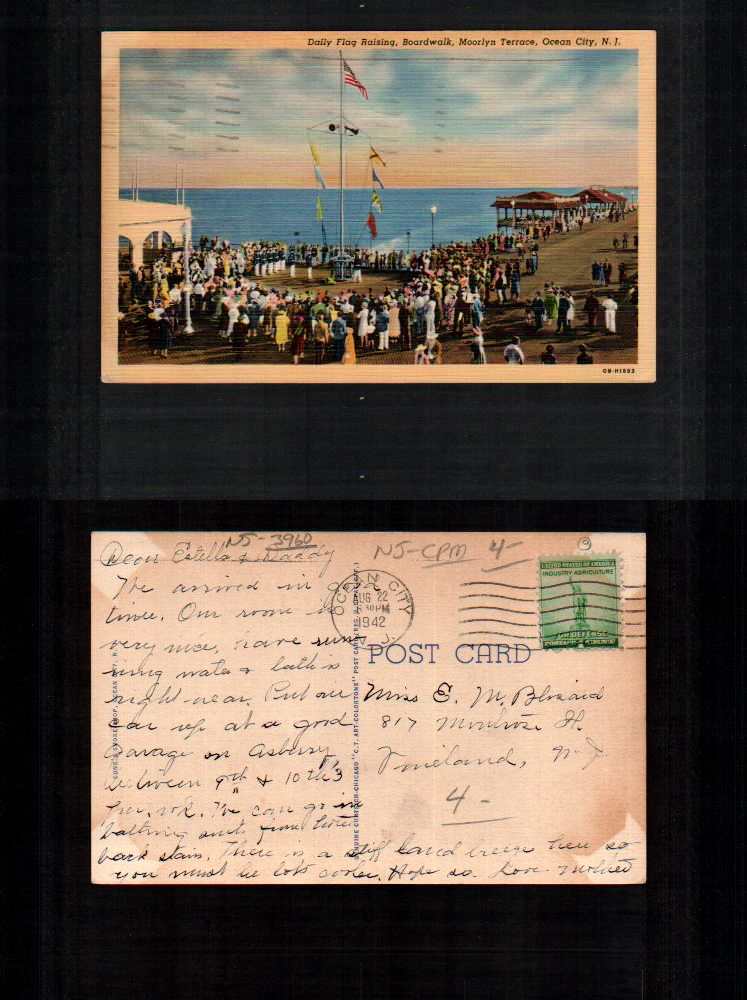 Daily Flag Raising, Boardwalk, Moorlyn Terrace, Ocean City, N. J.
OB-H1893
NJ-3960
NJ-CPM 4-
Dear Estella & Daddy
We arrived in
time. Our room is
very nice, have run
ning water & bath is
right near. Put our
car up at a good
Garage on Asbury,
between 9th & 10th 3
per. wk. We can go in
bathing suits from hotel
back stairs. There is a stiff land breeze here so
you must be lots cooler. Hope so. Love. Mother
OCEAN CITY
AUG 22
PM
1942
N. J.
UNITED STATES OF AMERICA
INDUSTRY AGRICULTURE
FOR DEFENSE
POST CARD
Miss E. M.
817 Montrose St.
Vineland, N. J.
4-
GENUINE CURTEICH-CHICAGO "C.T. ART-COLORTONE" POST CARD